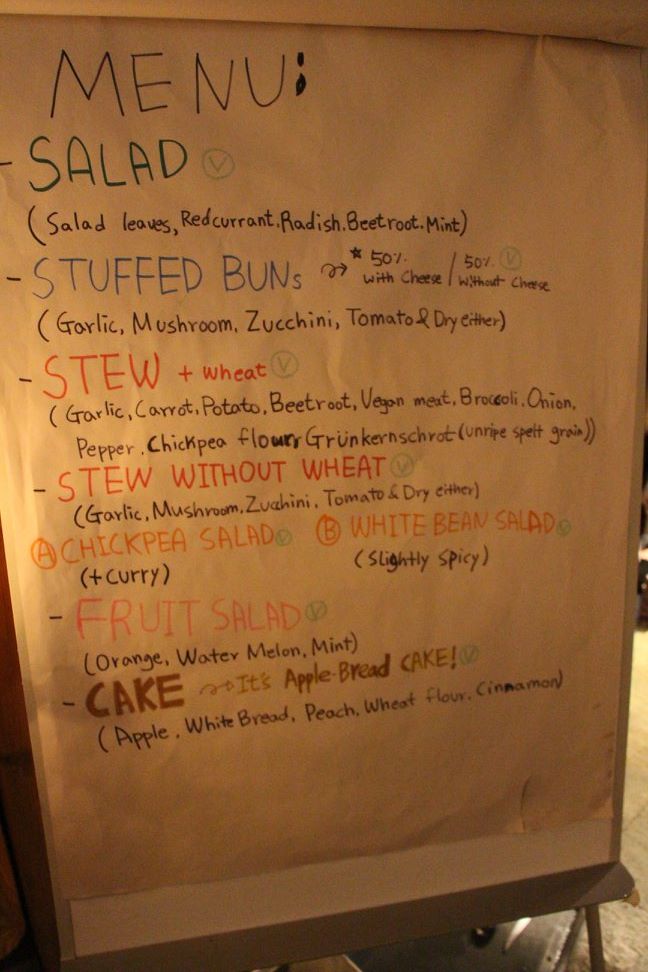 MENU:
- SALAD V
(Salad leaves, Redcurrant. Radish. Beetroot. Mint)
- STUFFED BUNs → ★ 50% with Cheese / 50% V without cheese
(Garlic, Mushroom, Zucchini, Tomato & Dry either)
- STEW + wheat V
(Garlic, Carrot, Potato, Beetroot, Vegan meat, Broccoli, Onion,
Pepper, Chickpea flour, Grünkernschrot (unripe spelt grain))
- STEW WITHOUT WHEAT V
(Garlic, Mushroom, Zucchini, Tomato & Dry either)
A CHICKPEA SALAD V B WHITE BEAN SALAD V
(+ curry) (slightly spicy)
- FRUIT SALAD V
(Orange, Water Melon, Mint)
- CAKE → It's Apple-Bread CAKE! V
(Apple, White Bread, Peach, Wheat flour, Cinnamon)